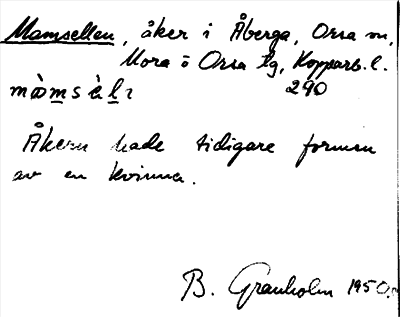 Mamsellen, åker i Åberga, Orsa sn,
Mora o Orsa tg, Kopparb. l.
màmsèlı 290
Åkern hade tidigare formen
av en kvinna.
B. Granholm 1950.